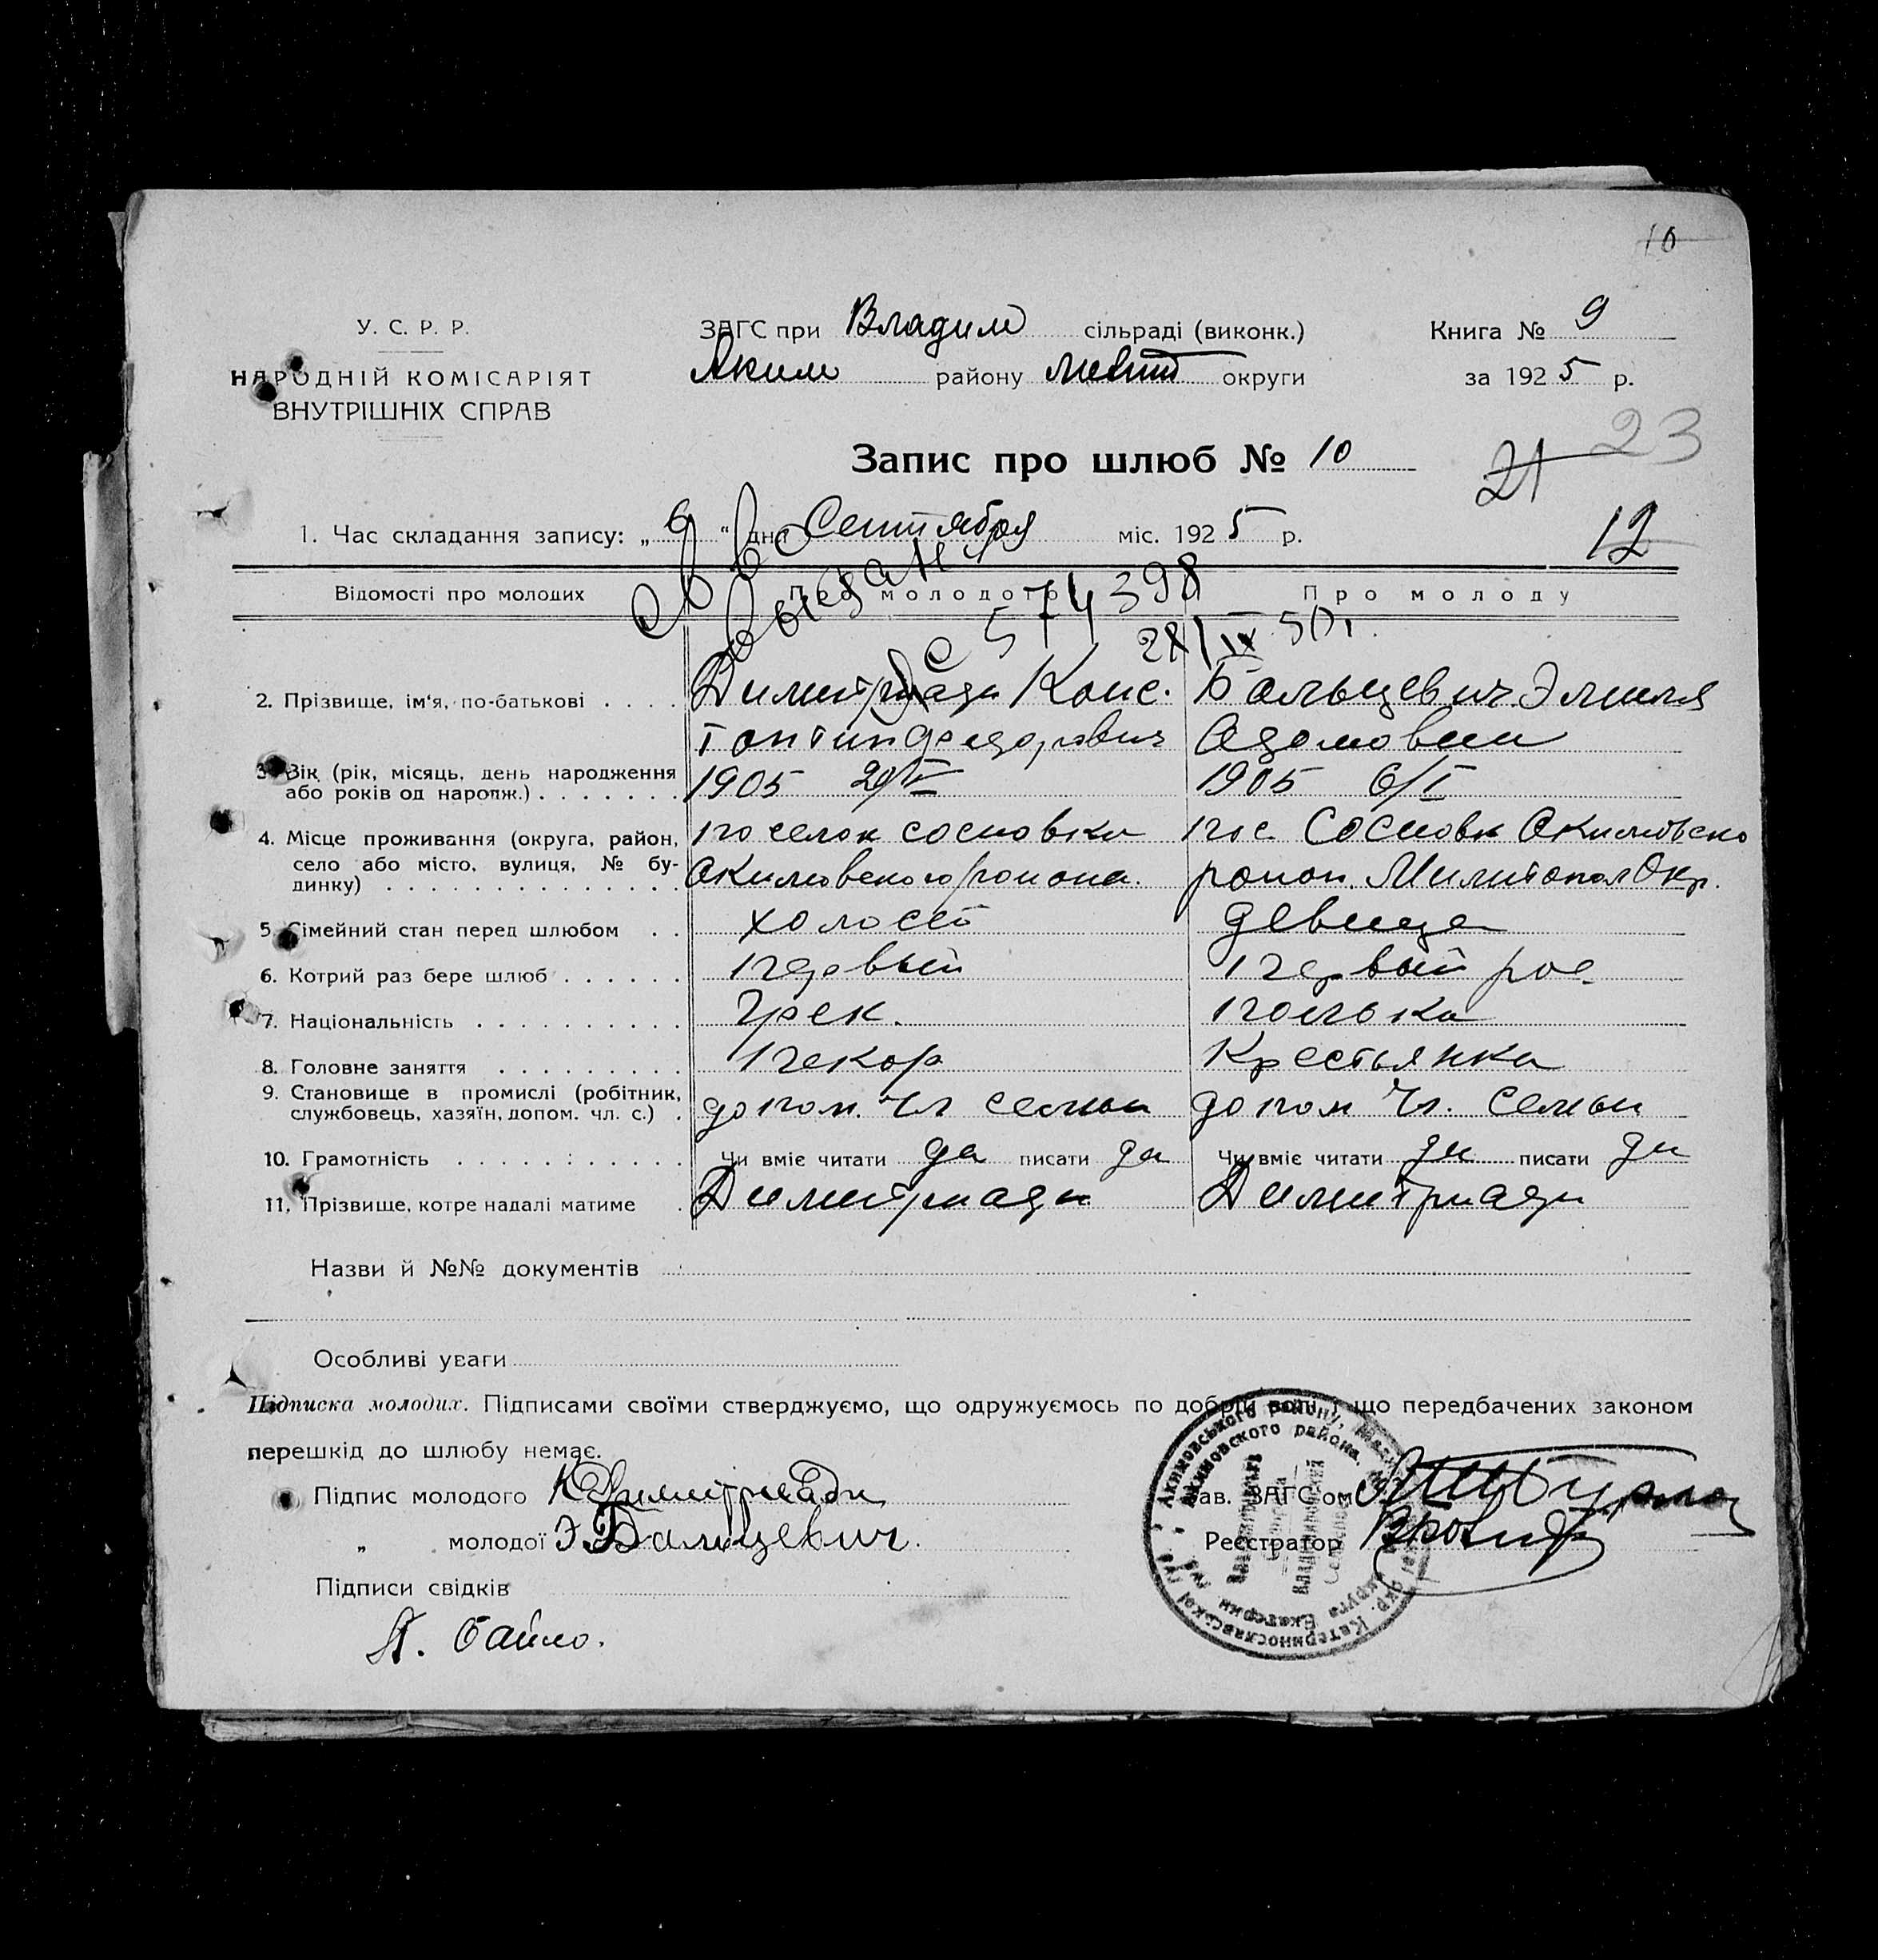 10
У. С. Р. Р.
НАРОДНІЙ КОМІСАРІЯТ
ВНУТРІШНІХ СПРАВ
ЗАГС при Владим сільраді (виконк.)
Аким району Мелит округи
Книга № 9
за 1925 р.
Запис про шлюб № 10
21 23
12
1. Час складання запису: „9“ дня Сентября міс. 1925 р.
Св во
выдан
с 574398
28/IX 50г.
Відомості про молодих Про молодого Про молоду
2. Прізвище, ім‘я, по-батькові . . . . Димитриади Конс. Бальцевич Эмиля
тантин Федорович Адамовна
3. Вік (рік, місяць, день народження або років од народж.) . . . . . . . 1905 20/V 1905 6/I
4. Місце проживання (округа, район, поселок сосновка пос. Сосновк Акимовско
село або місто, вулиця, № будинку) . . . . . . . . . . . . . . . Акимовского района. район. Милитопол Окр.
5. Сімейний стан перед шлюбом . . холост девица
6. Котрий раз бере шлюб . . . . . . первый первый раз
7. Національність . . . . . . . . . . Грек. полька
8. Головне заняття . . . . . . . . . пекар Крестьянка
9. Становище в промислі (робітник, службовець, хазяїн, допом. чл. с.) . допом. чл семьи допом чл. семьи
10. Грамотність . . . . . . . . . . . Чи вміє читати да писати да Чи вміє читати да писати да
11. Прізвище, котре надалі матиме . Димитриади Димитриади
Назви й №№ документів
Особливі уваги
Підписка молодих. Підписами своїми стверджуємо, що одружуємось по добрій волі і що передбачених законом
перешкід до шлюбу немає.
Підпис молодого К Димитриади
„ молодої Э. Бальцевич.
Підписи свідків
Зав. ЗАГС‘ом
Реєстратор
Акимовського району,
Акимовского района.
окр. Катеринославської губ.
округа Екатерин губ.
Владимировский